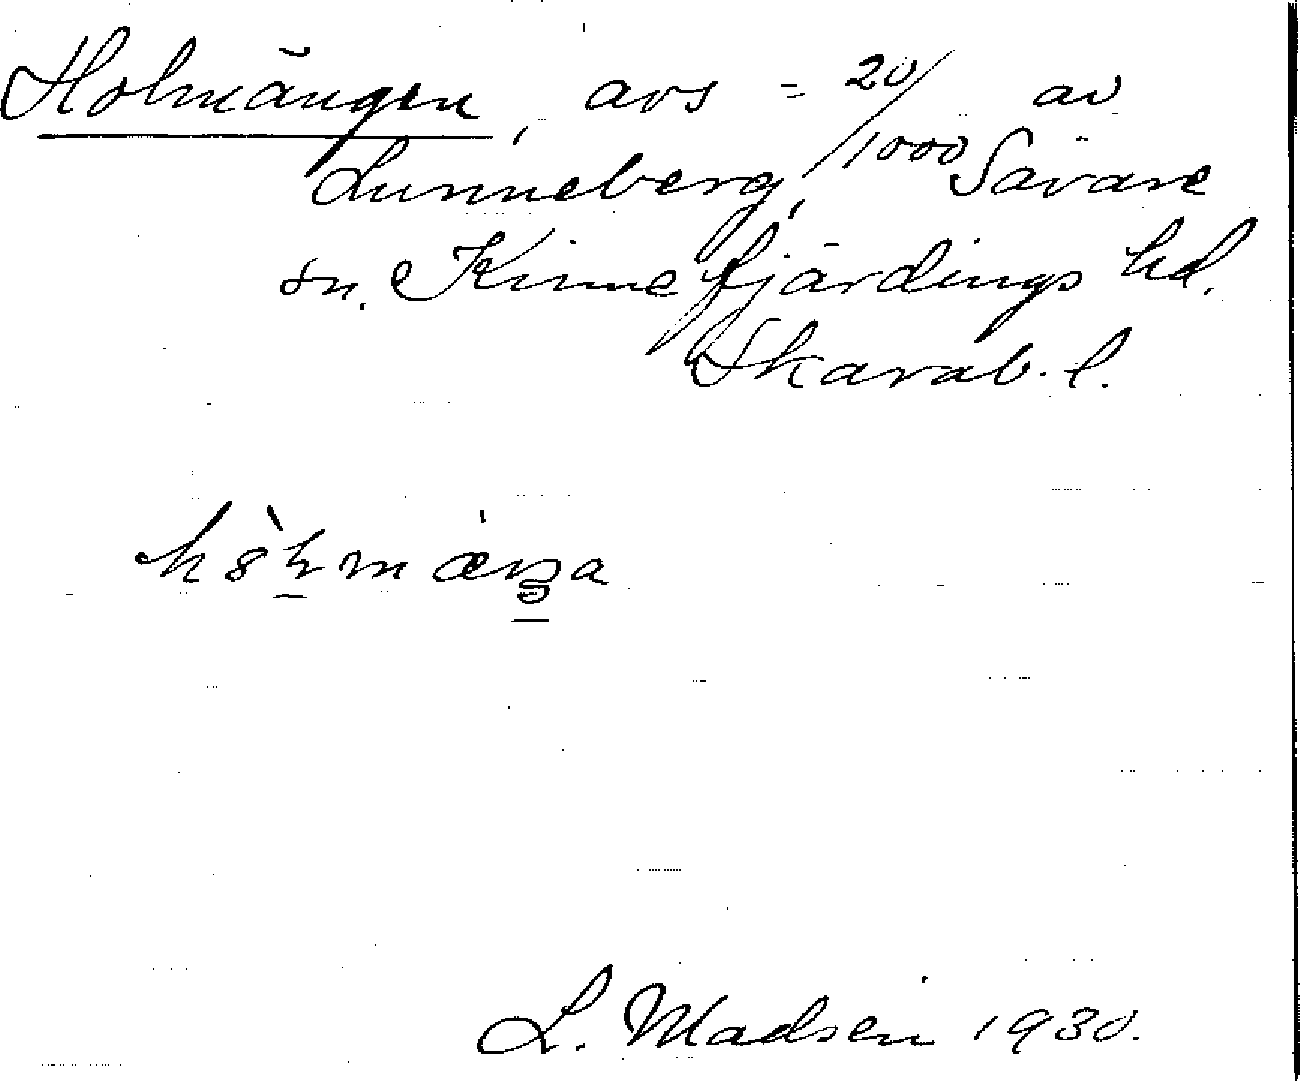 Holmängen, avs = 20/1000 av
Lunneberg, Sävare
sn. Kinnefjärdings hd.
Skarab. l.
L. Madsen 1930.